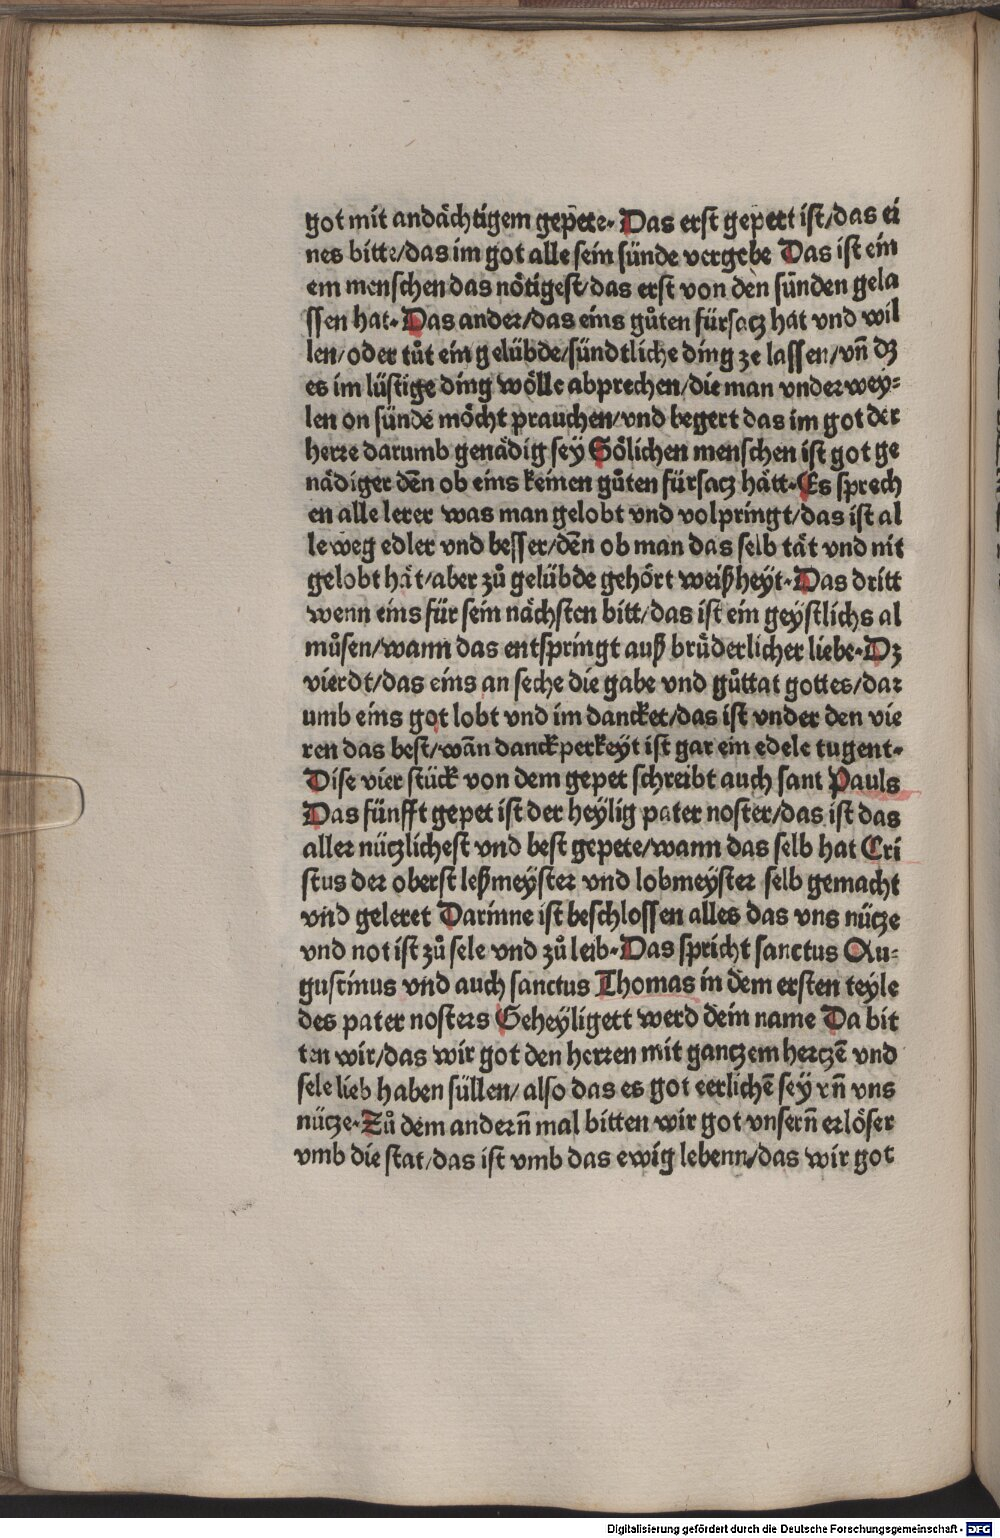 got mit andächtigem gepete· Das erst gepett ist/das ei
nes bitte/das im got alle sein sünde vergebe Das ist ein
em menschen das nötigest/das erst von den sünden gela
ssen hat· Das ander/das eins gůten fürsacz hat vnd wil
len/oder tůt ein gelübde/sündtliche ding ze lassen/vn̄ dz
es im lüstige ding wölle abprechen/die man vnderwey⸗
len on sünde möcht prauchen/vnd begert das im got der
herre darumb genädig sey Sölichen menschen ist got ge
nädiger deñ ob eins keinen gůten fürsacz hätt· Es sprech
en alle lerer was man gelobt vnd volpringt/das ist al
le weg edler vnd besser/deñ ob man das selb tät vnd nit
gelobt hät/aber zů gelübde gehört weißheyt· Das dritt
wenn eins für sein nächsten bitt/das ist ein geystlichs al
můsen/wann das entspringt auß brüderlicher liebe· Dz
vierdt/das eins an seche die gabe vnd gůttat gottes/dar
umb eins got lobt vnd im dancket/das ist vnder den vie
ren das best/wañ danckperkeyt ist gar ein edele tugent·
Dise vier stück von dem gepet schreibt auch sant Pauls
Das fünfft gepet ist der heylig pater noster/das ist das
aller nüczlichest vnd best gepete/wann das selb hat Cri
stus der oberst leßmeyster vnd lobmeyster selb gemacht
vnd geleret Darinne ist beschlossen alles das vns nücze
vnd not ist zů sele vnd zů leib· Das spricht sanctus Au⸗
gustinus vnd auch sanctus Thomas in dem ersten teyle
des pater nosters Geheyligett werd dein name Da bit
ten wir/das wir got den herren mit ganczem herczē vnd
sele lieb haben süllen/also das es got eerlichē sey vn̄ vns
nücze· Zů dem andern̄ mal bitten wir got vnsern̄ erlöser
vmb die stat/das ist vmb das ewig lebenn/das wir got
Digitalisierung gefördert durch die Deutsche Forschungsgemeinschaft - DFG